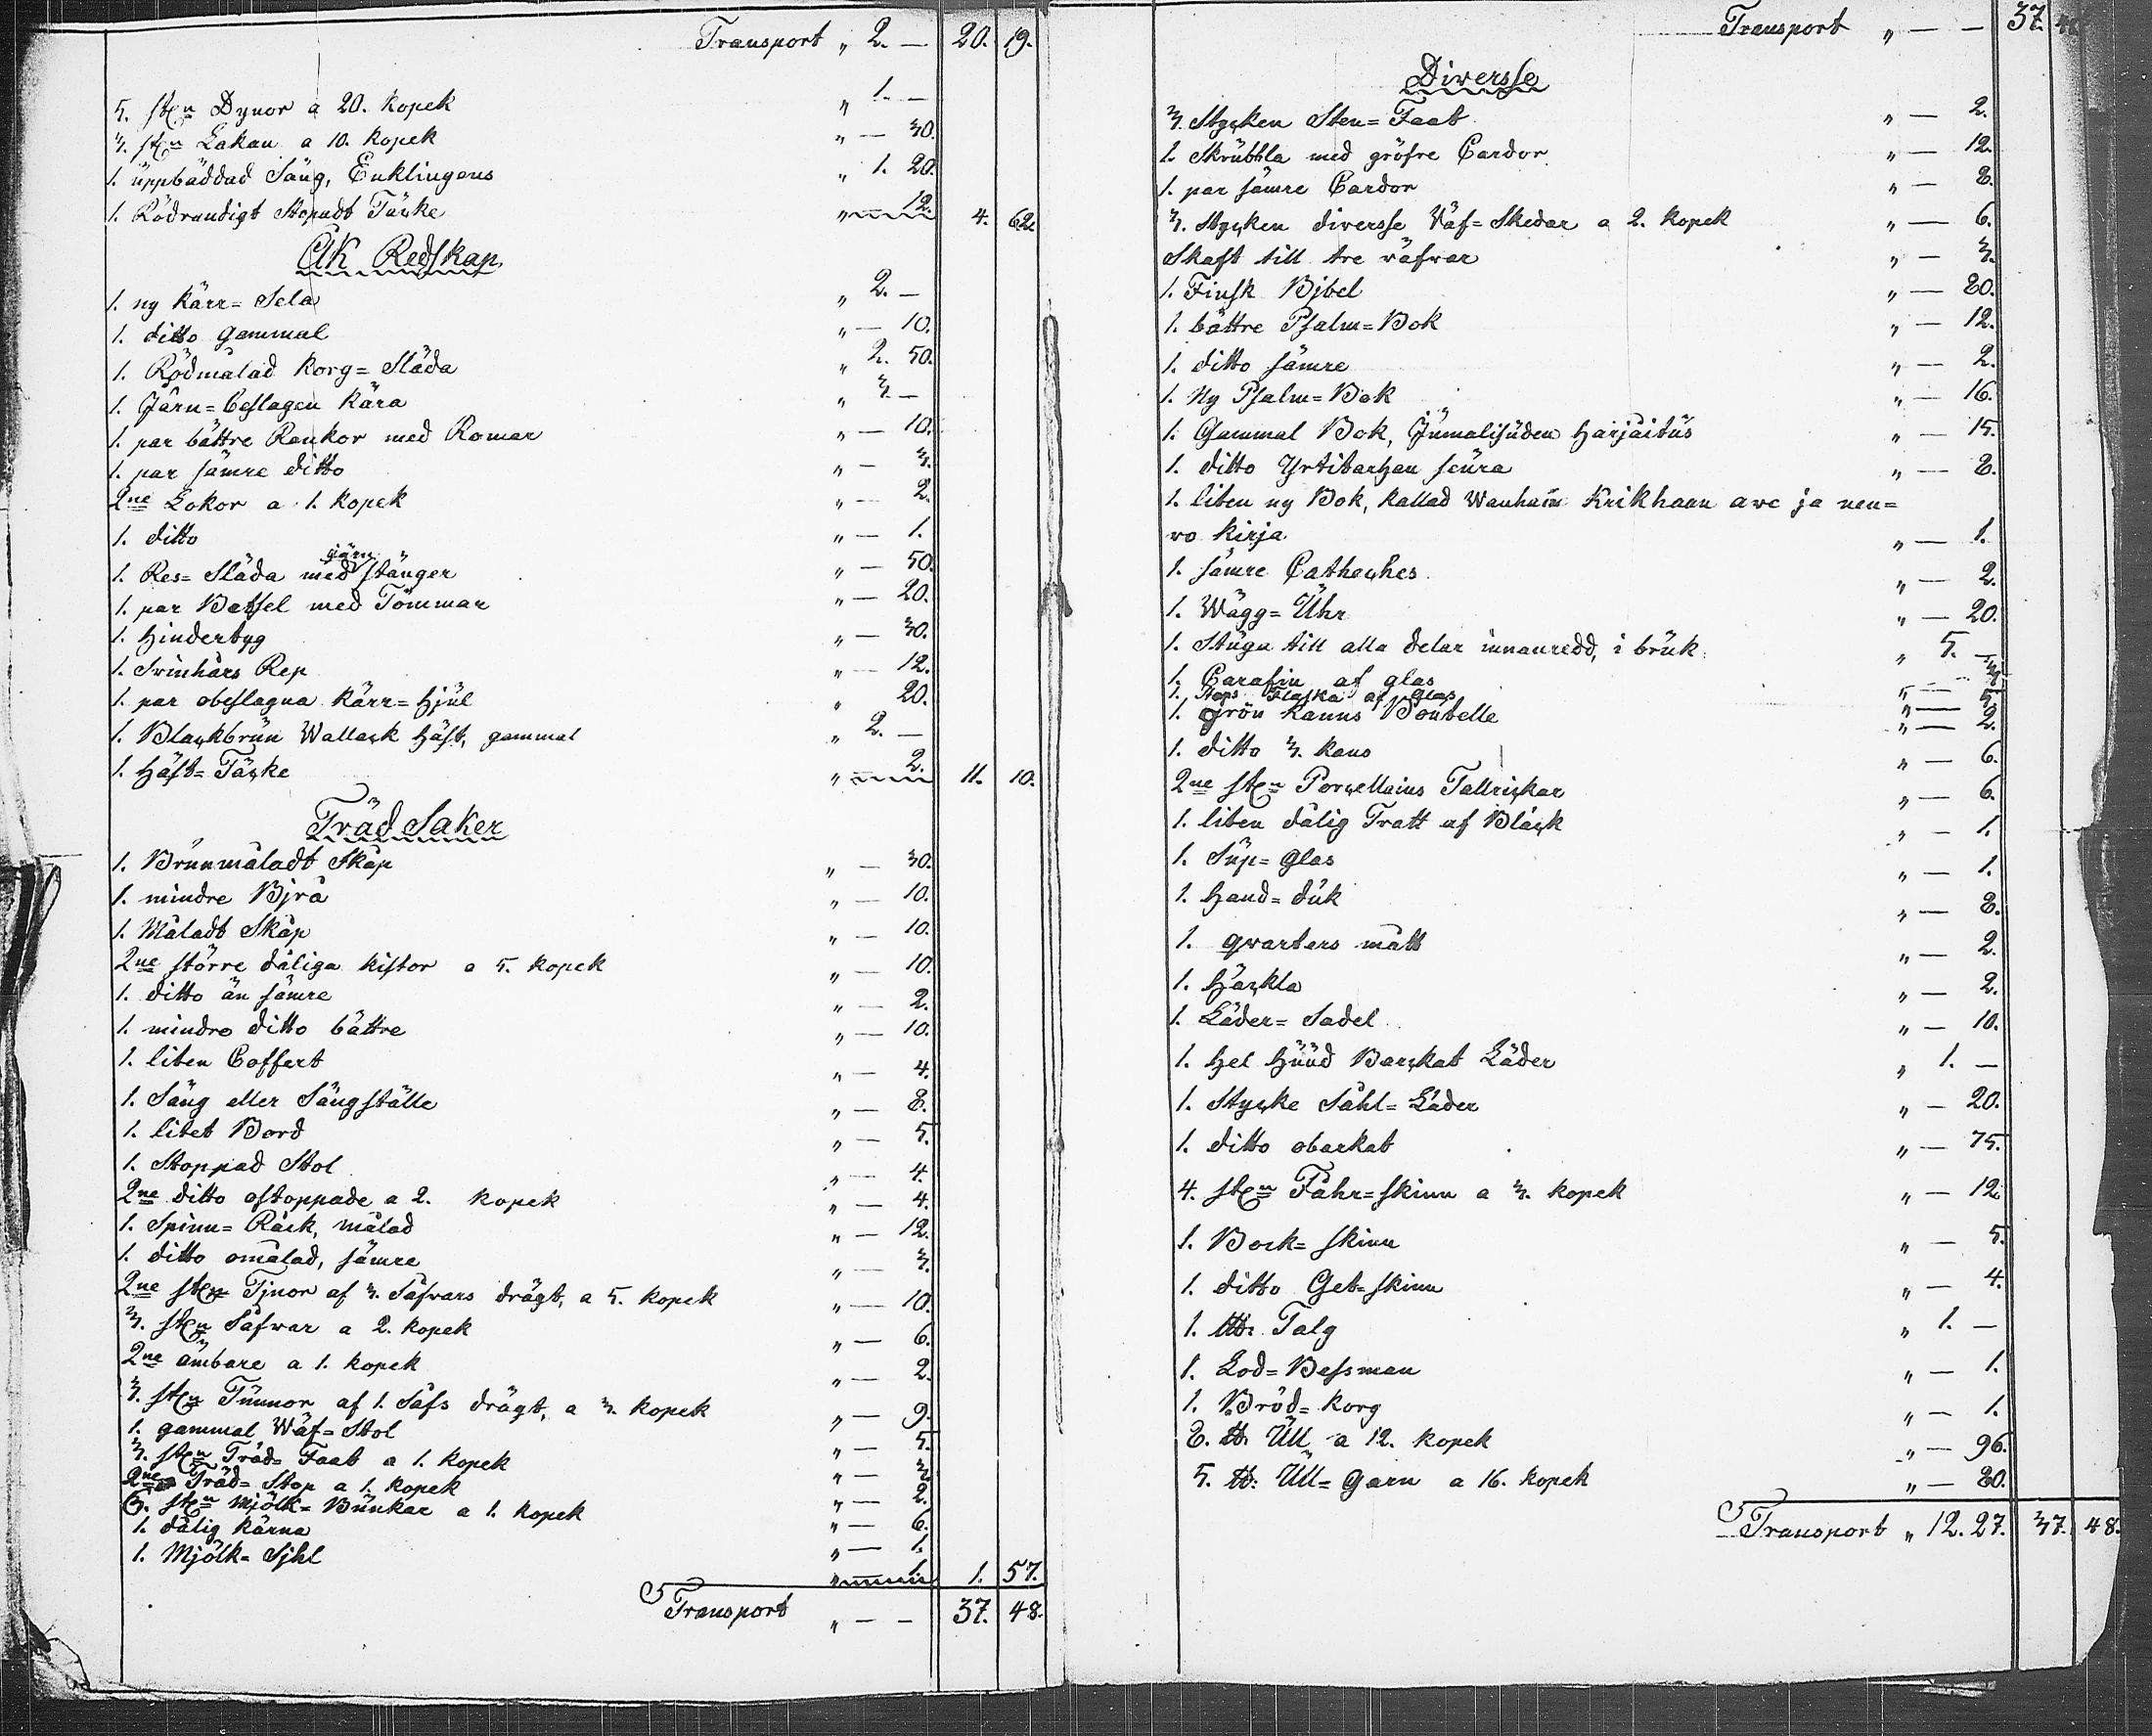 Transport " 2. — 20. 19.
5. st:n Dynor a 20. kopek " 1. —
3. st:n Lakan a 10. kopek " — 30.
1. uppbäddad Säng, Enklingens " 1. 20.
1. Rödrandigt Stopadt Täcke " — 12. 4. 62.
Åk Redskap
1. ny kärr= Sela " 2. —
1. ditto gammal " — 10.
1. Rödmålad korg= Släda " 2. 50.
1. Järn= beslagen kära " 3. —
1. par bättre Rankor med Romar " — 10.
1. par sämre ditto " — 3.
2ne Lokor a 1. kopek " — 2.
1. ditto " — 1.
1. Res= Släda med järn stänger " — 50.
1. par Betsel med Tömmar " — 20.
1. Hindertyg " — 30.
1. Svinhårs Rep " — 12.
1. par obeslagna kärr= Hjul " 20.
1. Blackbrun Wallack Häst, gammal " 2. —
1. Häst= Täcke " — 2. 11. 10.
Träd Saker
1. Brunmåladt Skåp " — 30.
1. mindre Bjrå " — 10.
1. Måladt Skåp " — 10.
2ne större dåliga kistor a 5. kopek " — 10.
1. ditto än sämre " — 2.
1. mindre ditto bättre " — 10.
1. liten Coffert " — 4.
1. Säng eller Sängställe " — 8.
1. litet Bord " — 5.
1. Stoppad Stol " — 4.
2ne ditto ostoppade a 2. kopek " — 4.
1. Spinn= Råck, målad " — 12.
1. ditto omålad, sämre " — 3.
2ne st:n Tjnor af 3. Såfvars drägt, a 5. kopek " — 10.
3. st:n Såfvar a 2. kopek " — 6.
2ne ämbare a 1. kopek " — 2.
3. st:n Tunnor af 1. Såfs drägt, a 3. kopek " — 9.
1. gammal Wäf= Stol " — 5.
3. st:n Träd= Faat a 1. kopek " — 3.
2ne Träd= Stop a 1. kopek " — 2.
6. st:n Mjölk= Bunkar a 1. kopek " — 6.
1. dålig kärna " — 1.
1. Mjölk= Sjhl " — 1. 1. 57.
Transport " — — 37. 48.
Transport " — — 37. 48
Diversse
3. Stycken Sten= Faat " — 2.
2. Skrubbla med gröfre Cardor " — 12.
1. par sämre Cardor " — 8.
3. Stycken diversse Väf= Skedar a 2. kopek " — 6.
Skaft till tre väfvar " — 3.
1. Finsk Bjbel " — 80.
1. bättre Psalm= Bok " — 12.
1. ditto sämre " — 2.
1. Ny Psalm= Bok " — 16.
1. Gammal Bok, Jumalisuden Harjoitus " — 15.
1. ditto Yrtitarhan seura " — 8.
1. liten ny Bok, kallad Wanhain Krikhaan awe ja nen=
vo kirja " — 1.
1. sämre Catheches " — 2.
1. Wägg= Uhr " — 20.
1. Stuga till alla delar innanredd, i bruk " 5. —
1. Carafin af glas " — 3.
1. Stops Flaska af Glas " — 5.
1. grön kanns Boutelle " — 2.
1. ditto 3. kans " — 6.
2ne st:n Porcellains Tallrickar " — 6.
1. liten dålig Tratt af Bläck " — 1.
1. Sup= glas " — 1.
1. Hand= duk " — 8.
1. qvarters mått " — 2.
1. Häckla " — 2.
1. Läder= Sadel " — 10.
1. Hel Huud Barckat Läder " 1. —
1. Stycke Såhl= Läder " — 20.
1. ditto obarkat " — 75.
4. st:n Fåhr=skinn a 3. kopek " — 12.
1. Bock= skinn " — 5.
1. ditto Get=skinn " — 4.
1. Talg " 1. —
1. Lod= Bessman " — 1.
1. Bröd= korg " — 1.
8. ℔. Ull a 12. kopek " — 96.
5. ℔. Ull= garn a 16. kopek " — 80.
Transport " 12. 27. 37. 48.